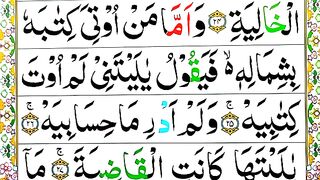 الْخَالِيَةِ ﴿٢٤﴾ وَاَمَّا مَنْ اُوْتِيَ كِتٰبَهٗ
بِشِمَالِهٖ ۙ فَيَقُوْلُ يٰلَيْتَنِيْ لَمْ اُوْتَ
كِتٰبِيَهْ ۚ ﴿٢٥﴾ وَلَمْ اَدْرِ مَا حِسَابِيَهْ ۚ ﴿٢٦﴾
يٰلَيْتَهَا كَانَتِ الْقَاضِيَةَ ۚ ﴿٢٧﴾ مَاۤ